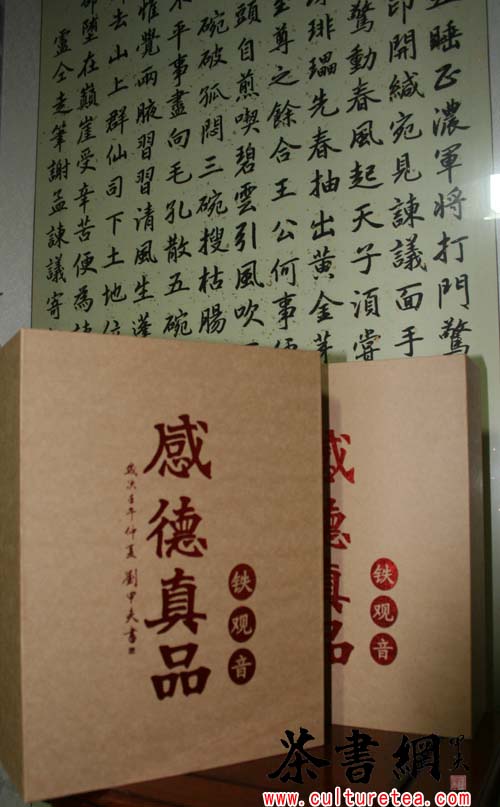 睡正濃軍將打門驚
印開緘宛見諫議面手
驚動春風起天子須嘗
琲瓃先春抽出黃金芽
至尊之餘合王公何事便
頭自煎喫碧雲引風吹
碗破孤悶三碗搜枯腸
平事盡向毛孔散五碗
惟覺兩腋習習清風生蓬
去山上群仙司下土地位
墮在巔崖受辛苦便為
仝走筆謝孟諫議寄
感德真品
铁观音
歲次壬午仲夏 劉甲夫書
感德真品
铁观音
茶書網
www.culturetea.com